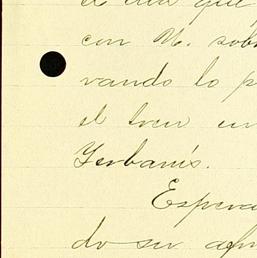 el día que
con U. sobr
vando lo p
el tren en
Yerbanís.
Espera
do su afm